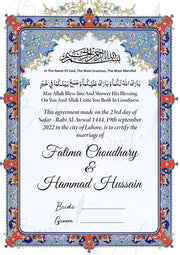 بِسْمِ اللهِ الرَّحْمٰنِ الرَّحِيْمِ
In The Name Of God, The Most Gracious, The Most Merciful
بَارَكَ اللهُ لَكُمْ وَبَارَكَ عَلَيْكُمْ وَجَمَعَ بَيْنَكُمَا فِي خَيْرٍ
May Allah Bless You And Shower His Blessing
On You And Allah Unite You Both In Goodness
This agreement made on the 23rd day of
Safar - Rabi Al-Awwal 1444, 19th september
2022 in the city of Lahore, is to certify the
marriage of
Fatima Choudhary
&
Hammad Hussain
Bride
Groom